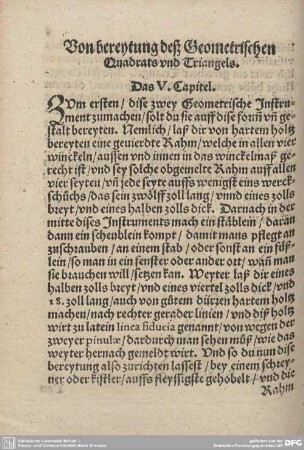 Von bereytung deß Geometrischen
Quadrats vnd Triangels.
Das V. Capitel.
ZVm ersten / dise zwey Geometrische Instru-
ment zumachen / solt du sie auff dise form̃ vñ ge-
stalt bereyten. Nemlich / laß dir von hartem holtz
bereyten eine geuierdte Rahm / welche in allen vier
winckeln / aussen vnd innen in das winckelmaß ge-
recht ist / vnd sey solche obgemelte Rahm auff allen
vier seyten / vñ jede seyte auffs wenigst eins werck-
schůchs / das sein zwölff zoll lang / vnnd eines zolls
breyt / vnd eines halben zolls dick. Darnach in der
mitte dises Instruments mach ein stäblein / daran
dann ein scheublein kompt / damit mans pflegt an
zuschrauben / an einem stab / oder sonst an ein fůß-
lein / so man in ein fenster oder ander ort / wañ man
sie brauchen will / setzen kan. Weyter laß dir eines
halben zolls breyt / vnd eines viertel zolls dick / vnd
18. zoll lang / auch von gůtem dürren hartem holtz
machen / nach rechter gerader linien / vnd diß holtz
wirt zu latein linea fiducia genannt / von wegen der
zweyer pinulæ / dardurch man sehen můß / wie das
weyter hernach gemeldt wirt. Vnd so du nun dise
bereytung also zurichten lassest / bey einem schrey-
ner oder kistler / auffs fleyssigste gehobelt / vnd die
Rahm